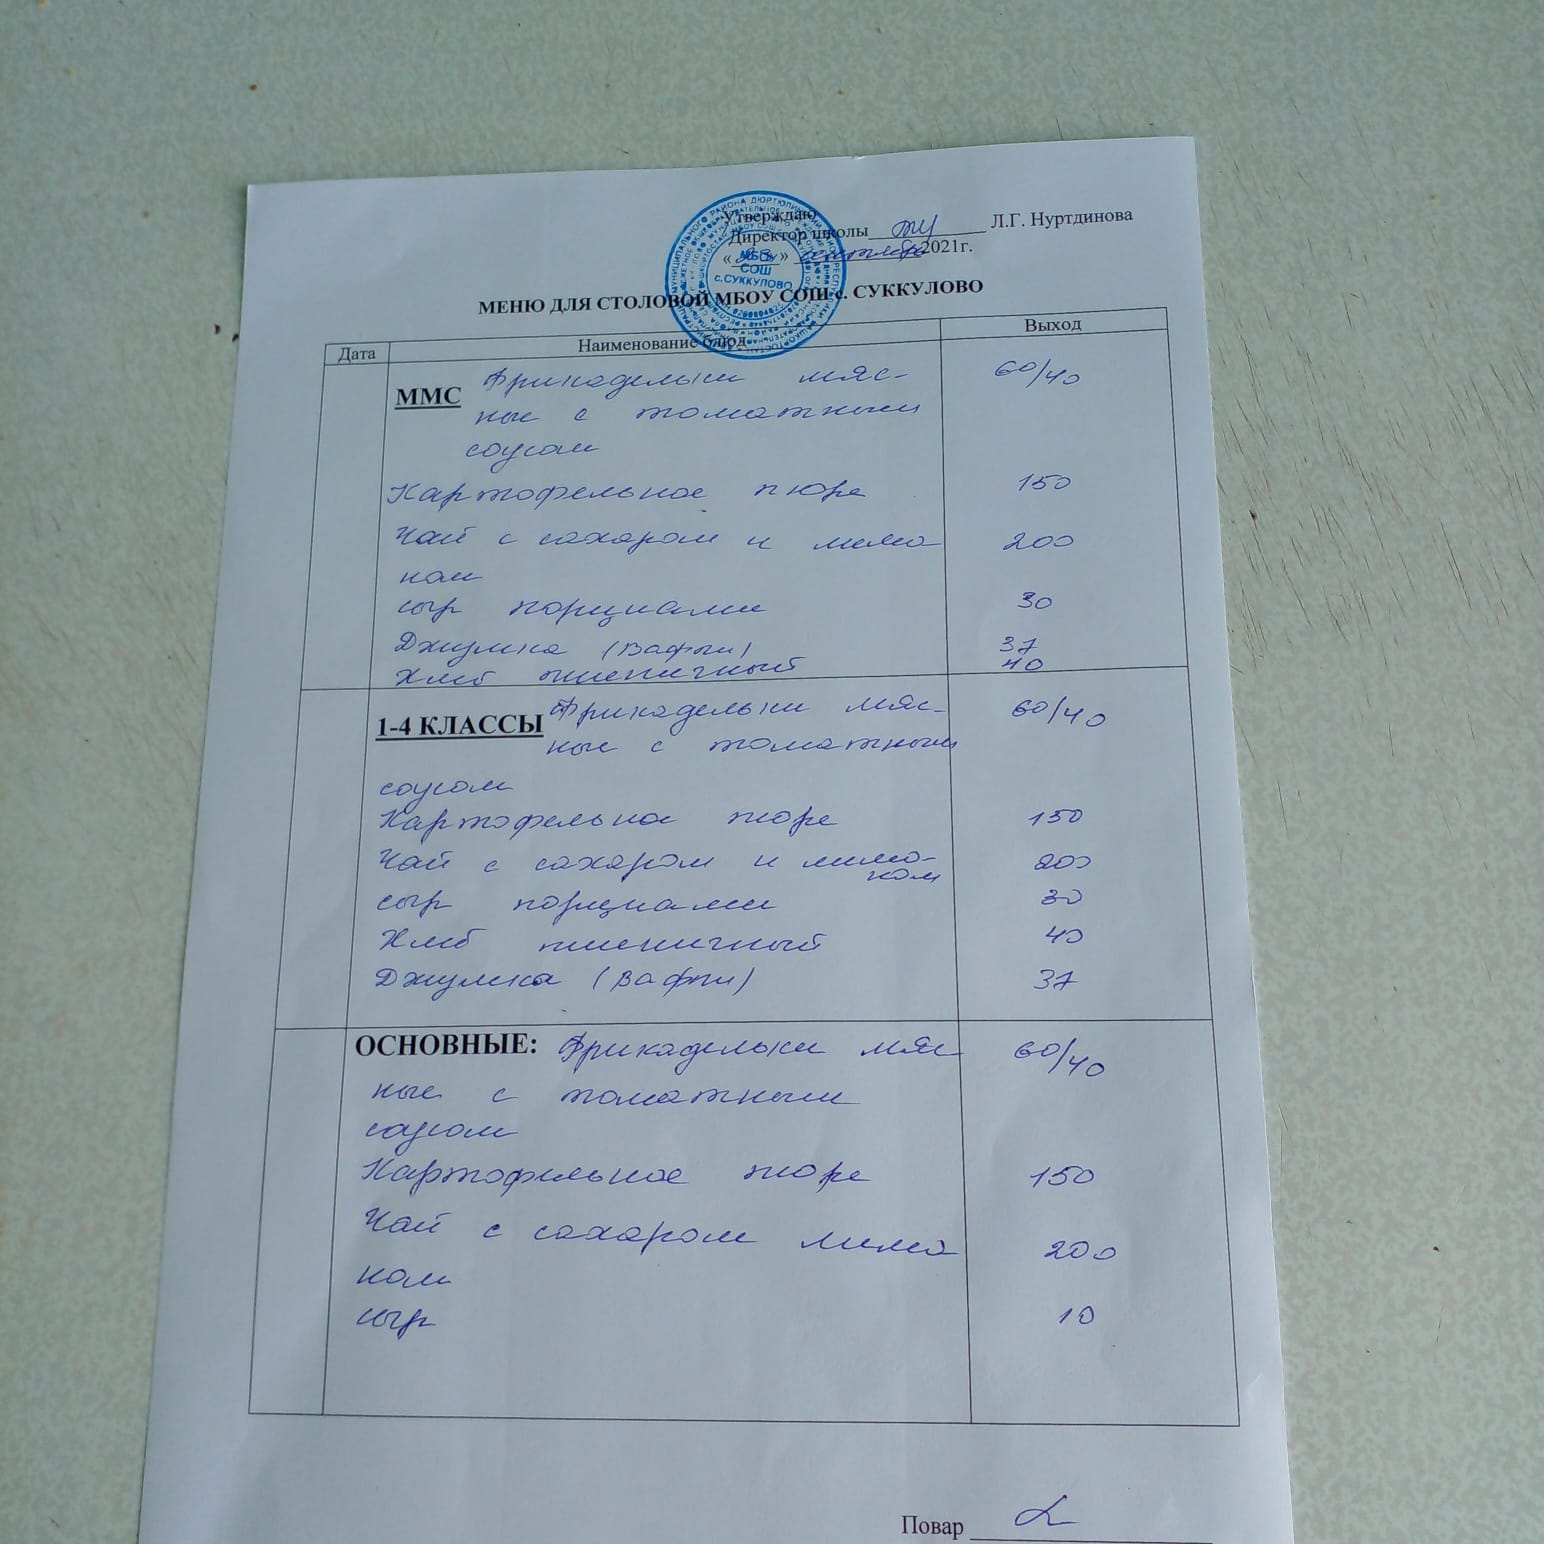 Утверждаю
Директор школы Л.Г. Нуртдинова
« » сентября 2021г.
МБОУ
СОШ
с.СУККУЛОВО
МЕНЮ ДЛЯ СТОЛОВОЙ МБОУ СОШ с. СУККУЛОВО
Дата Наименование блюд Выход
ММС Фрикадельки мяс- 60/40
ные с томатным
соусом
Картофельное пюре 150
Чай с сахаром и лимо 200
ном
сыр порциями 30
Джулика (Вафли) 37
Хлеб пшеничный 40
1-4 КЛАССЫ Фрикадельки мяс- 60/40
ные с томатным
соусом
Картофельное пюре 150
Чай с сахаром и лимо- 200
ном
сыр порциями 30
Хлеб пшеничный 40
Джулика (Вафли) 37
ОСНОВНЫЕ: Фрикадельки мяс 60/40
ные с томатным
соусом
Картофельное пюре 150
Чай с сахаром лимо 200
ном
сыр 10
Повар